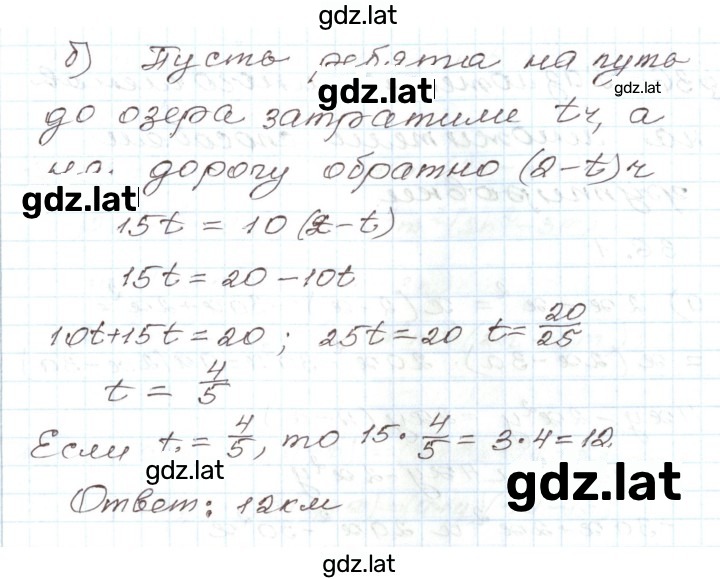 gdz.lat
б) Пусть ребята на путь
gdz.lat gdz.lat
до озера затратили tч, а
на дорогу обратно (2-t)ч
gdz.lat
15t = 10(2-t)
15t = 20 - 10t
10t+15t = 20 ; 25t = 20 t = 20/25
t = 4/5
Если t = 4/5, то 15 · 4/5 = 3 · 4 = 12.
gdz.lat
gdz.lat
Ответ: 12км
gdz.lat